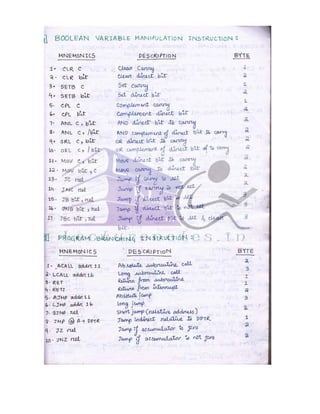 BOOLEAN VARIABLE MANIPULATION INSTRUCTION :
MNEMONICS DESCRIPTION BYTE
1- CLR C Clear Carry 1
2- CLR bit Clear direct bit 2
3- SETB C Set carry 1
4- SETB bit Set direct bit 2
5- CPL C Complement carry 1
6- CPL bit Complement direct bit 2
7- ANL C, bit AND direct bit to carry 2
8- ANL C, /bit AND complement of direct bit to carry 2
9- ORL C, bit OR direct bit to carry 2
10- ORL C, /bit OR complement of direct bit to carry 2
11- MOV C, bit Move direct bit to carry 2
12- MOV bit, C Move carry to direct bit 2
13- JC rel Jump if carry is set 2
14- JNC rel Jump if carry is not set 2
15- JB bit, rel Jump if direct bit is set
16- JNB bit, rel Jump if direct bit is not set
17- JBC bit, rel Jump if direct bit is set & clear 3
bit.
PROGRAM BRANCHING INSTRUCTION :
MNEMONICS DESCRIPTION BYTE
1- ACALL addr 11 Absolute subroutine call 2
2- LCALL addr 16 Long subroutine call 3
3- RET Return from subroutine 1
4- RETI Return from interrupt 1
5- AJMP addr 11 Absolute jump 2
6- LJMP addr 16 Long jump 3
7- SJMP rel Short jump (relative address) 2
8- JMP @ A+ DPTR Jump indirect relative to DPTR 1
9- JZ rel Jump if accumulator is zero 2
10- JNZ rel Jump if accumulator is not zero 2